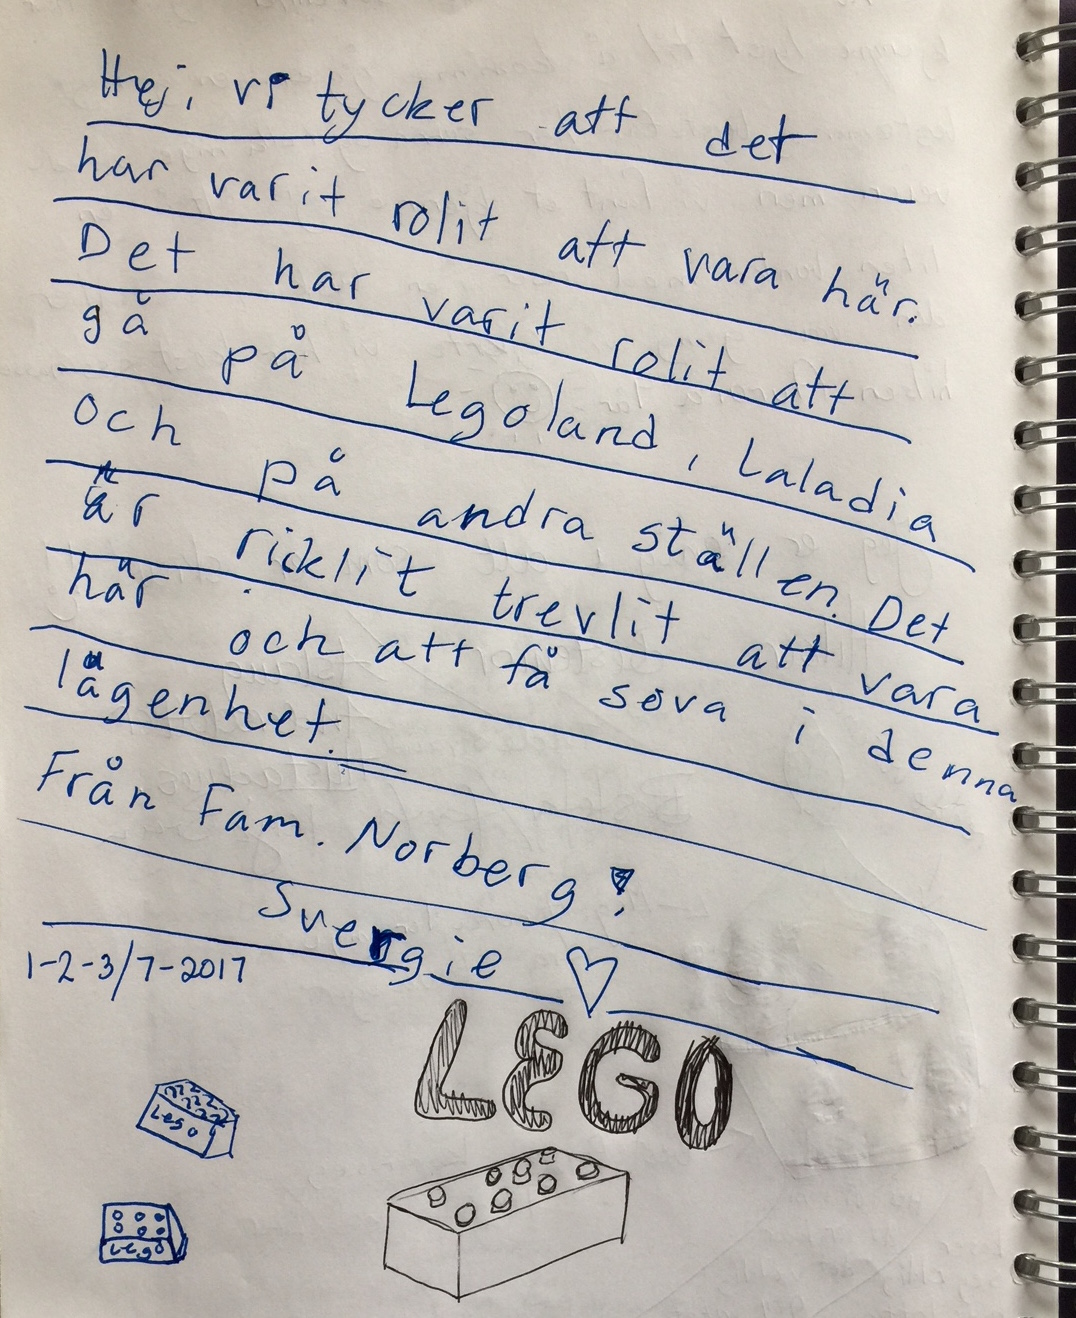 Hej, vi tycker att det
har varit rolit att vara här.
Det har varit rolit att
gå på Legoland, Laladia
och på andra ställen. Det
är ricklit trevlit att vara
här och att få sova i denna
lägenhet.
Från Fam. Norberg!
Svergie ♡
1-2-3/7-2017
LEGO
Lego
Lego